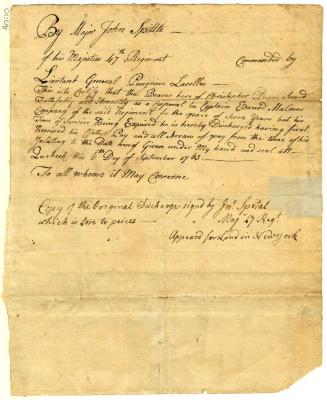 By Major John Spittle
of his Majesties 47th Regiment Commanded by
Lieutant General Peregrine Lacelles
This is to Certify that the Bearer here of Christopher Served
Faithfully and Honestly as a Corporal in Captain Edward Malmes
Company of the said Regiment for the space of Seven Years but his
time of Service being Expired he is hereby Discharged having first
Received his Pay and all Arears of pay from the time of his
Inlisting to the Date hereof Given under My hand and seal att
Quebeck this 6th Day of September 1763
To all whome it May Concerne
Copy of the Original Discharge signd by Jno Spital
which is tore to peices Maj 47 Regt
Appeard for Land in New York